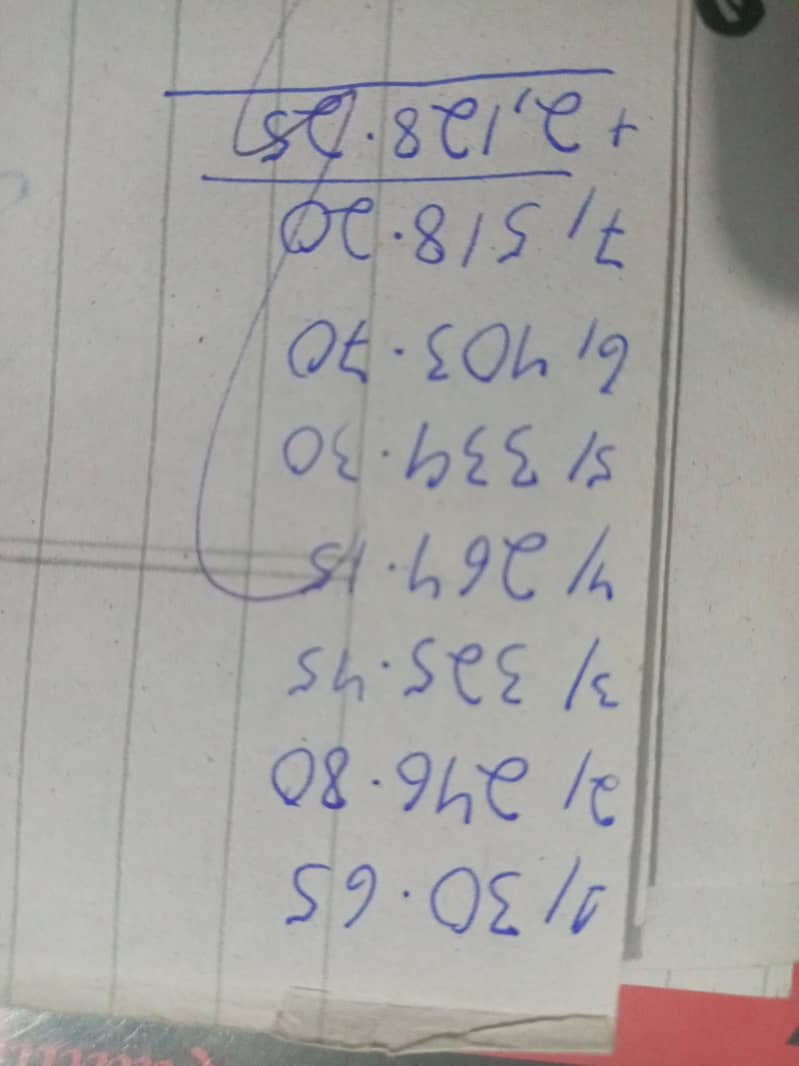 1/ 30.65
2/ 246.80
3/ 325.45
4/ 264.15
5/ 334.30
6/ 403.70
7/ 518.20
+ 2,128.25